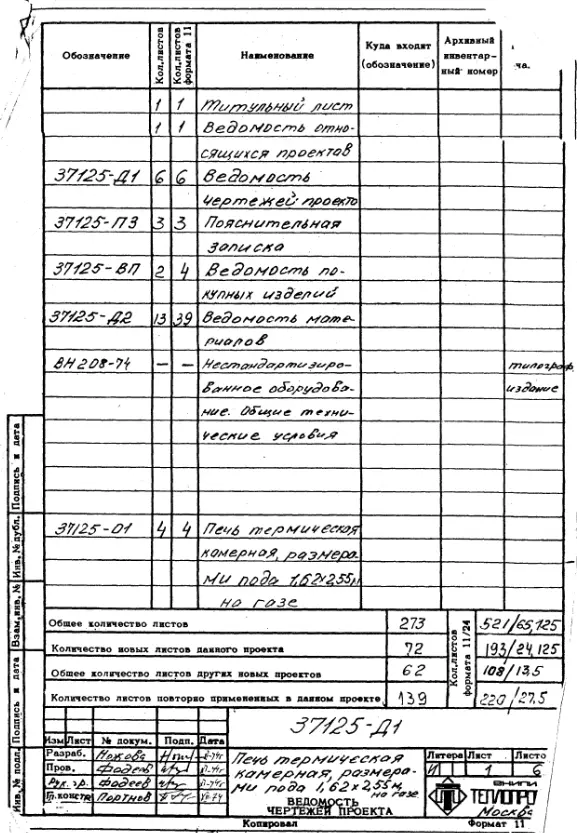 Обозначение Кол.листов Кол.листов формата 11 Наименование Куда входит (обозначение) Архивный инвентарный номер
1 1 Титульный лист
1 1 Ведомость отно-
сящихся проектов
37125-Д1 6 6 Ведомость
чертежей проекта
37125-ПЗ 3 3 Пояснительная
записка
37125-ВП 2 4 Ведомость по-
купных изделий
37125-Д2 13 39 Ведомость мате-
риалов
ВН 208-74 — — Нестандартизиро- типограф.
ванное оборудова- издание
ние. Общие техни-
ческие условия
37125-01 4 4 Печь термическая
камерная, размера-
ми пода 1,62×2,55м,
на газе
Общее количество листов 273 Кол.листов формата 11/24 521/65,125
Количество новых листов данного проекта 72 193/24,125
Общее количество листов других новых проектов 62 108/13,5
Количество листов повторно примененных в данном проекте 139 220/27,5
37125-Д1
Изм Лист № докум. Подп. Дата
Разраб.
Пров. Фадеев
Рук. гр. Фадеев
Гл.констр. Портнов
Печь термическая
камерная, размера-
ми пода 1,62×2,55м,
на газе
ВЕДОМОСТЬ
ЧЕРТЕЖЕЙ ПРОЕКТА
Литера Лист Листо
И 1 6
ВНИПИ
ТЕПЛОПРО
Москва
Копировал Формат 11
Инв.№ подл. Подпись и дата Взам.инв.№ Инв.№ дубл. Подпись и дата